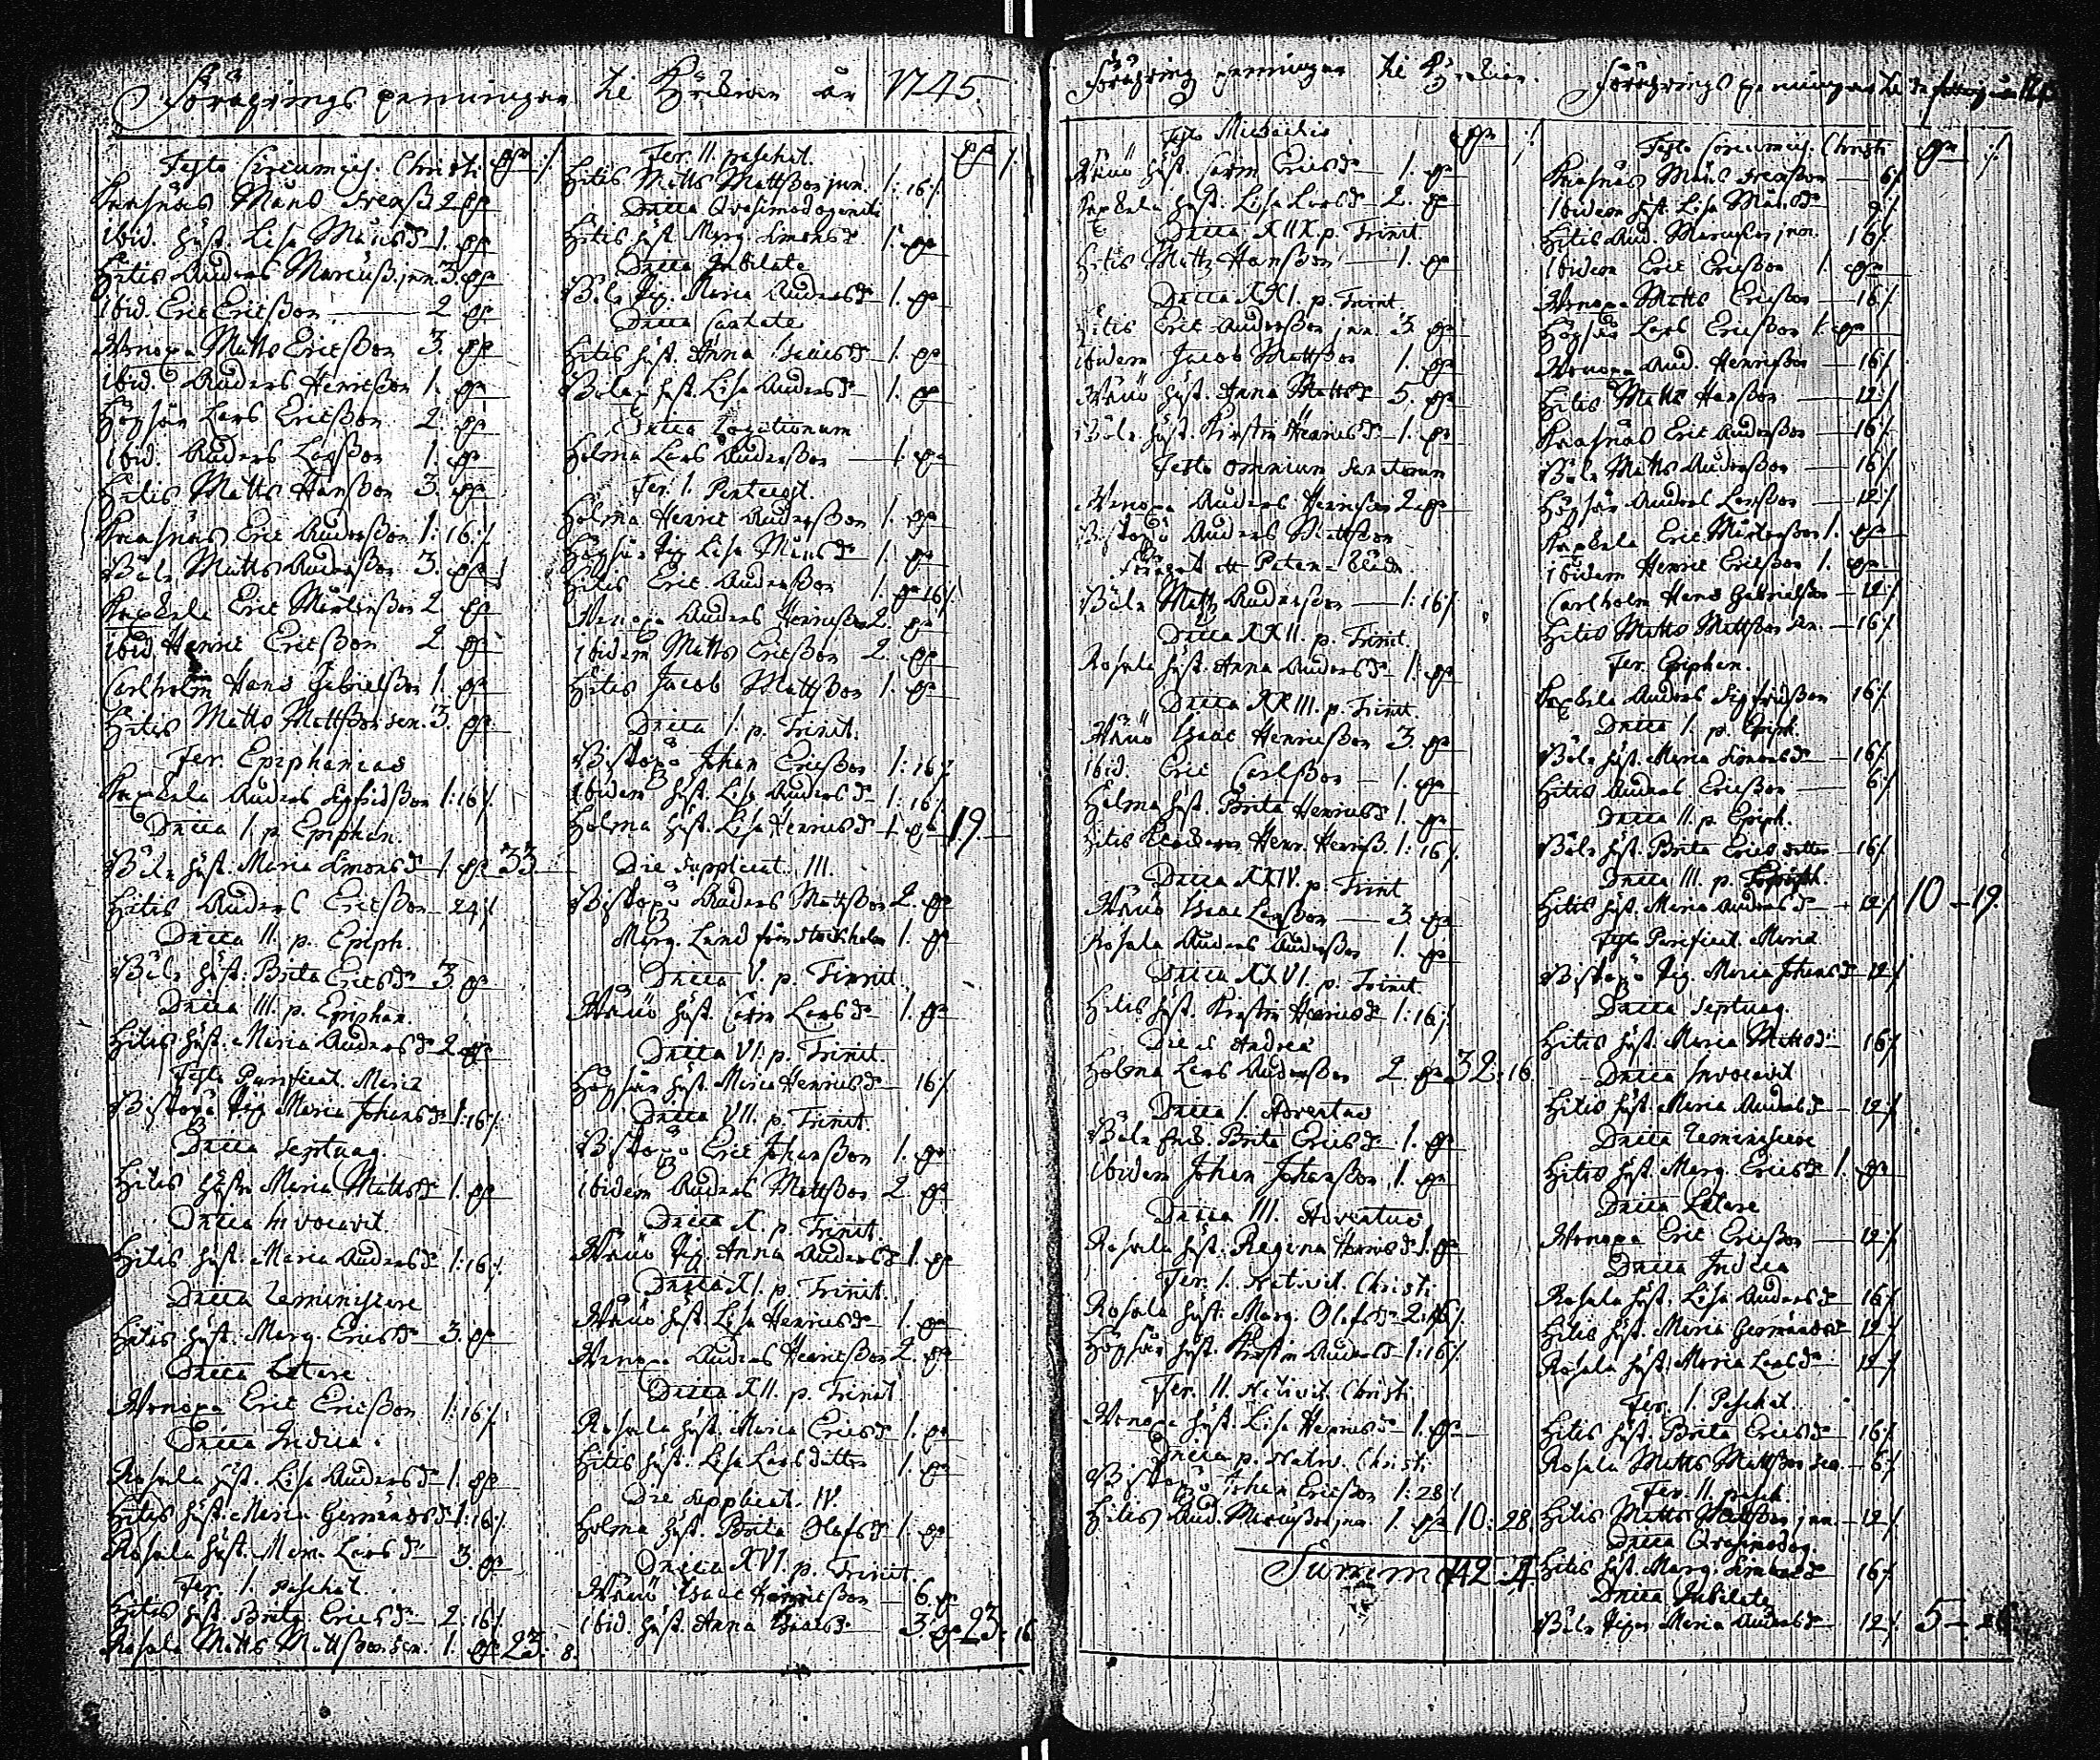 Föräringspenningar til Kyrkian år 1745.
Festo Circumcis. Christi
Kasnäs Måns Irenss. 2
Ibid. hust. Lisa Månsdr 1.
Hitis Anders Marcuss. jun. 3.
Ibid. Eric Ericsson 2
Wänoxa Matts Ericsson 3.
Ibid. Anders Henricsson 1.
Högsår Lars Ericsson 2.
Ibid. Anders Larsson 1.
Hitis Matts Hansson 3.
Kasnäs Eric Andersson 1:16
Böle Matts Andersson 3.
Kaxkela Eric Mårtensson 2
Ibid. Henric Ericsson 2
Carlholm Hans Gabrielsson 1.
Hitis Matts Mattsson sen. 3.
Fer. Epiphanias
Kaxkela Anders Sigfridsson 1:16
Dnica I. p. Epiphan.
Böle hust. Maria Simonsdr 1 33.
Hitis Anders Ericsson 24
Dnica II. p. Epiph.
Böle hust. Brita Ericsdr 3
Dnica III. p. Epiphan.
Hitis hust. Maria Andersdr 2
Festo Purificat. Mariæ
Biskopö Pig. Maria Johansdr 1:16
Dnica Septuag.
Hitis hustr. Maria Mattsdr 1.
Dnica Invocavit
Hitis hust. Maria Andersdr 1:16
Dnica Reminiscere
Hitis hust. Marg. Ericsdr 3.
Dnica Lætare
Wänoxa Eric Ericsson 1:16
Dnica Judica
Rosala hust. Lisa Andersdr 1
Hitis hust. Maria Germundsdr 1:16
Rosala hust. Mar. Larsdr 3.
Fer. I. paschat.
Hitis hust. Brita Ericsdr 2:16
Rosala Matts Mattsson sen. 1. 23: 8.
Fer. II. paschat.
Hitis Matts Mattsson jun. 1:16
Dnica Qvasimodogeniti
Hitis hust. Marg. Simonsdr 1.
Dnica Jubilate
Böle Pig. Maria Andersdr 1.
Dnica Cantate
Hitis hust. Anna Isacsdr 1.
Böle hust. Lisa Andersdr 1.
Dnica Rogationum
Holma Lars Andersson 1.
Fer. I. Pentecost.
Holma Henric Andersson 1.
Högsår Pig. Lisa Månsdr 1.
Hitis Eric Andersson 1. 16
Wänoxa Anders Henricsson 2.
Ibidem Matts Ericsson 2.
Hitis Jacob Mattsson 1.
Dnica I. p. Trinit.
Biskopö Johan Ericsson 1:16
Ibidem hust. Lisa Andersdr 1:16
Holma hust. Lisa Henricsdr 1 19.
Die Supplicat. III.
Biskopö Anders Mattsson 2.
Marg. Lund från Stockholm 1.
Dnica V. p. Trinit.
Wänö hust. Carin Larsdr 1.
Dnica VI. p. Trinit.
Högsår hust. Maria Henricsdr 16
Dnica VII. p. Trinit.
Biskopö Eric Johansson 1.
Ibidem Anders Mattsson 2
Dnica X. p. Trinit.
Wänö Pig. Anna Andersdr 1.
Dnica XI. p. Trinit.
Wänö hust. Lisa Henricsdr 1.
Wänoxa Anders Henricsson 2.
Dnica XII. p. Trinit.
Rosala hust. Maria Ericsdr 1.
Hitis hust. Lisa Larsdotter 1.
Die Supplicat. IV.
Holma hust. Brita Olofsdr 1.
Dnica XVI. p. Trinit.
Wänö Isaac Henricsson 6.
Ibid. hust. Anna Isaacsdr 3. 23: 16
Föräring penningar til Kyrkian.
Festo Michaelis
Wänö hust. Carin Ericsdr 1.
Kaxkela hust. Lisa Larsdr 2.
Dnica XIX. p. Trinit.
Hitis Matts Hansson 1.
Dnica XXI. p. Trinit.
Hitis Eric Andersson jun. 3.
Ibidem Jacob Mattsson 1.
Wänö hust. Anna Mattsdr 5.
Böle hust. Kirstin Henricsdr 1.
Festo Omnium Sanctorum
Wänoxa Anders Henricsson 2
Biskopö Anders Mattsson
förärat ett Paten-kläde
Böle Matts Andersson 1:16
Dnica XXII. p. Trinit.
Rosala hust. Anna Andersdr 1.
Dnica XXIII. p. Trinit.
Wänö Isaac Henricsson 3.
Ibid. Eric Carlsson 1.
Holma hust. Brita Henricsdr 1.
Hitis Henr. Henricss. 1:16
Dnica XXIV. p. Trinit
Wänö Isaac Larsson 3.
Rosala Anders Andersson 1.
Dnica XXVI. p. Trinit.
Hitis hust. Kirstin Henricsdr 1:16
Die S. Andreæ
Holma Lars Andersson 2. 32:16.
Dnica I. Adventus
Böle hust. Brita Ericsdr 1.
Ibidem Johan Johansson 1.
Dnica III. Adventus
Rosala hust. Regina Henricsdr 1.
Fer. I. Nativit. Christi
Rosala hust. Marg. Olofsdr 2:16
Högsår hust. Kirstin Andersdr 1:16
Fer. II. Nativit. Christi
Wänoxa hust. Lisa Henricsdr 1.
Dnica p. Nativ. Christi
Biskopö Johan Ericsson 1:28
Hitis And. Marcusson jun. 1. 10:28.
Summa 142:4
Föräringspenningar til de
Festo Circumcis. Christi
Kasnäs Måns Irensson 6
Ibidem hust. Lisa Månsdr 9
Hitis And. Marcusson jun. 16
Ibidem Eric Ericsson 1.
Wänoxa Matts Ericsson 16
Högsår Lars Ericsson 1.
Wänoxa And. Henricsson 16
Hitis Matts Hansson 12
Kasnäs Eric Andersson 16
Böle Matts Andersson 16
Högsår Anders Larsson 12
Kaxkela Eric Mårtensson 1.
Ibidem Henric Ericsson 1.
Carlholm Hans Gabrielsson 12
Hitis Matts Mattsson sen. 16
Fer. Epiphan.
Kaxkela Anders Sigfridsson 16
Dnica I. p. Epiph.
Böle hust. Maria Simonsdr 16
Hitis Anders Ericsson 6
Dnica II. p. Epiph.
Böle hust. Brita Ericsdotter 16
Dnica III. p. Epiph.
Hitis hust. Maria Andersdr 12 10 - 19.
Festo Purificat. Mariæ
Biskopö Pig. Maria Johansdr 12
Dnica Septuag.
Hitis hust. Maria Mattsdr 16
Dnica Invocavit
Hitis hust. Maria Andersdr 12
Dnica Reminiscere
Hitis hust. Marg. Ericsdr 1.
Dnica Lætare
Wänoxa Eric Ericsson 12
Dnica Judica
Rosala hust. Lisa Andersdr 16
Hitis hust. Maria Germundsdr 12
Rosala hust. Maria Larsdr 12
Fer. I. Paschat.
Hitis hust. Brita Ericsdr 16
Rosala Matts Mattsson sen. 6
Fer. II. pasch.
Hitis Matts Mattsson jun. 12
Dnica Qvasimodog.
Hitis hust. Marg. Simonsdr 16
Dnica Jubilate
Böle Pigan Maria Andersdr 12 5 - 26.